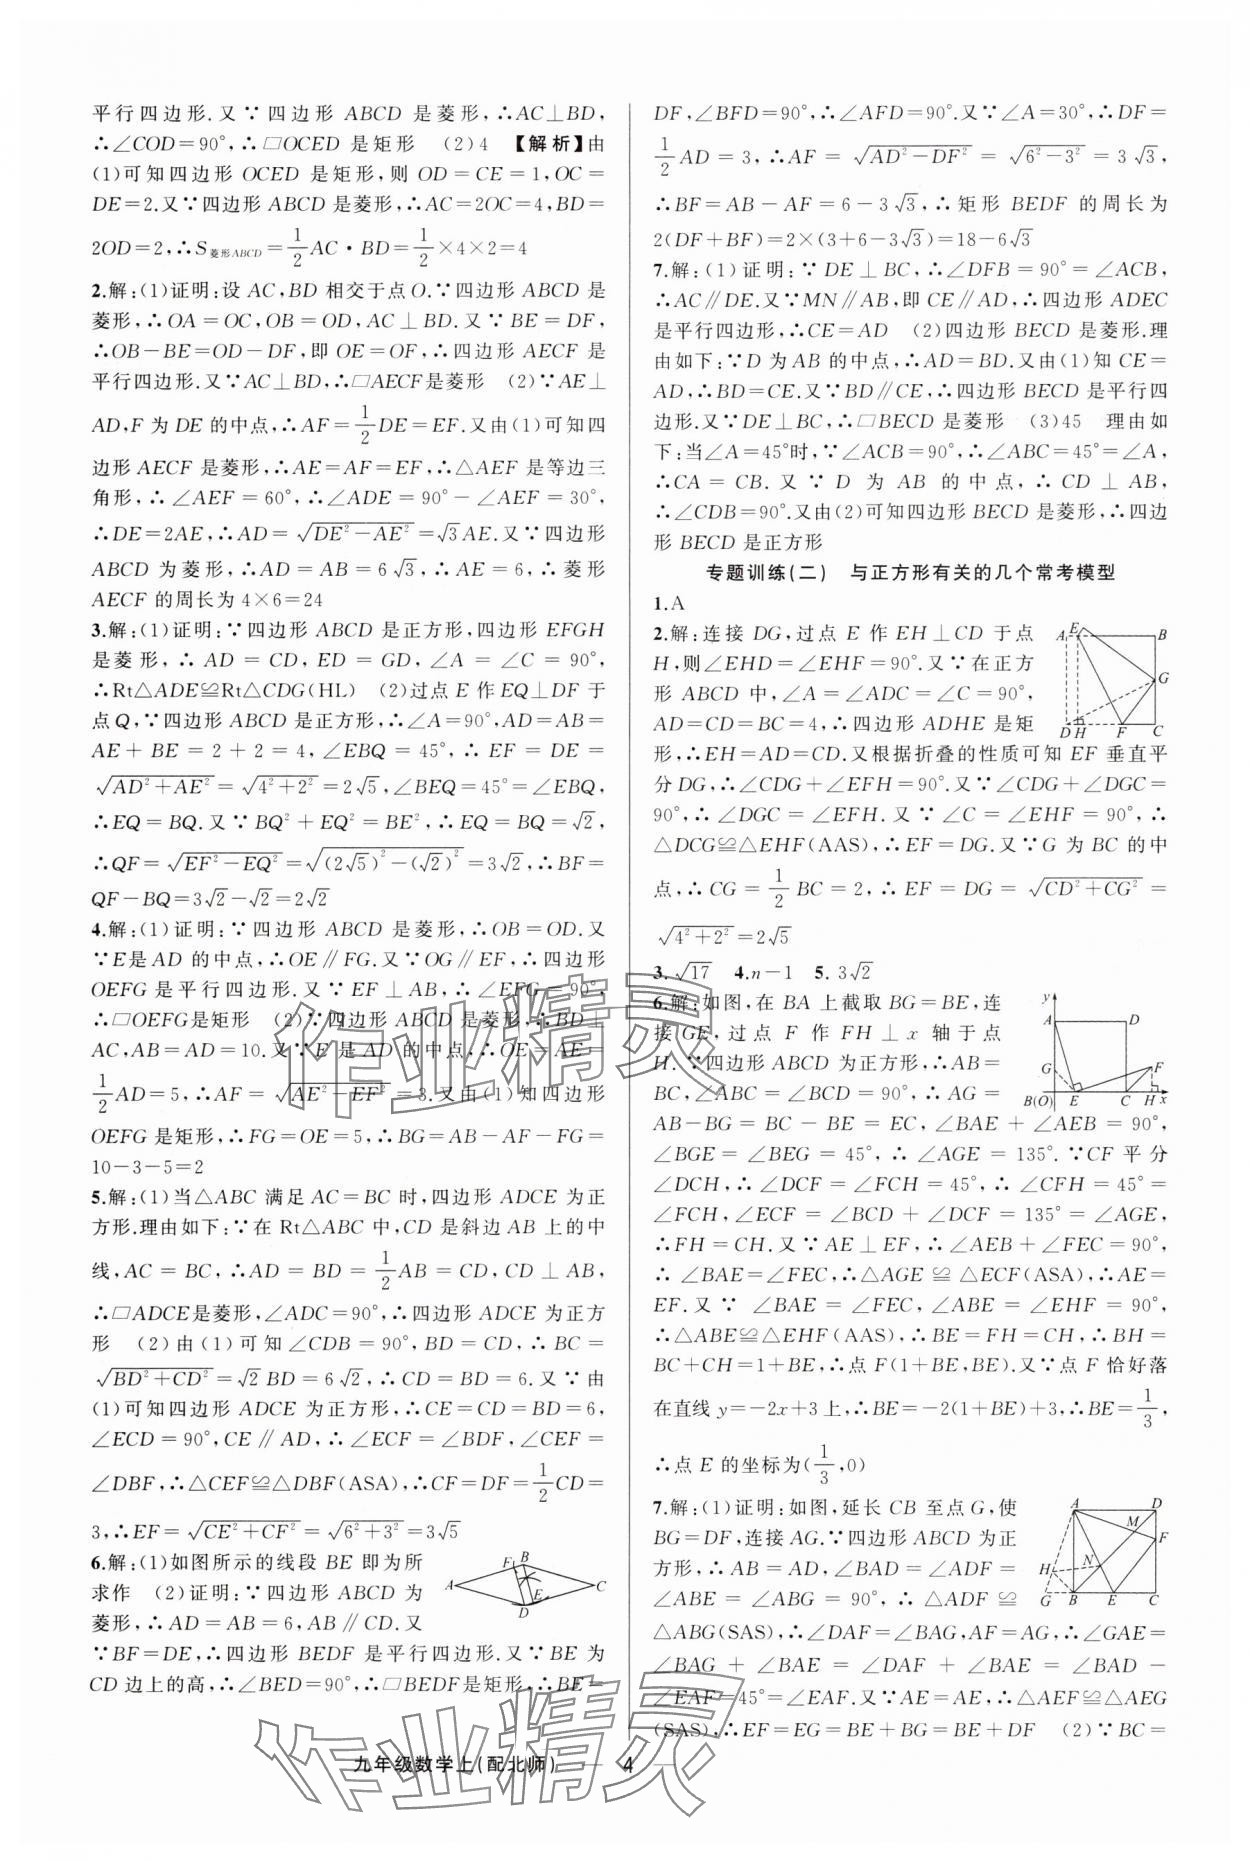 平行四边形.又∵四边形 ABCD 是菱形,∴AC⊥BD,
∴∠COD=90°,∴□OCED 是矩形 (2)4 【解析】由
(1)可知四边形 OCED 是矩形,则 OD=CE=1,OC=
DE=2.又∵四边形 ABCD 是菱形,∴AC=2OC=4,BD=
2OD=2,∴S菱形ABCD=1/2AC·BD=1/2×4×2=4
2.解:(1)证明:设 AC,BD 相交于点 O.∵四边形 ABCD 是
菱形,∴OA=OC,OB=OD,AC⊥BD.又∵BE=DF,
∴OB-BE=OD-DF,即 OE=OF,∴四边形 AECF 是
平行四边形.又∵AC⊥BD,∴□AECF是菱形 (2)∵AE⊥
AD,F 为 DE 的中点,∴AF=1/2DE=EF.又由(1)可知四
边形 AECF 是菱形,∴AE=AF=EF,∴△AEF 是等边三
角形,∴∠AEF=60°,∴∠ADE=90°-∠AEF=30°,
∴DE=2AE,∴AD=√(DE²-AE²)=√3AE.又∵四边形
ABCD 为菱形,∴AD=AB=6√3,∴AE=6,∴菱形
AECF 的周长为 4×6=24
3.解:(1)证明:∵四边形 ABCD 是正方形,四边形 EFGH
是菱形,∴AD=CD,ED=GD,∠A=∠C=90°,
∴Rt△ADE≌Rt△CDG(HL) (2)过点 E 作 EQ⊥DF 于
点 Q,∵四边形 ABCD 是正方形,∴∠A=90°,AD=AB=
AE+BE=2+2=4,∠EBQ=45°,∴EF=DE=
√(AD²+AE²)=√(4²+2²)=2√5,∠BEQ=45°=∠EBQ,
∴EQ=BQ.又∵BQ²+EQ²=BE²,∴EQ=BQ=√2,
∴QF=√(EF²-EQ²)=√((2√5)²-(√2)²)=3√2,∴BF=
QF-BQ=3√2-√2=2√2
4.解:(1)证明:∵四边形 ABCD 是菱形,∴OB=OD.又
∵E是AD 的中点,∴OE∥FG.又∵OG∥EF,∴四边形
OEFG 是平行四边形.又∵EF⊥AB,∴∠EFG=90°,
∴□OEFG是矩形 (2)∵四边形 ABCD 是菱形,∴BD⊥
AC,AB=AD=10.又∵E 是 AD 的中点,∴OE=AE=
1/2AD=5,∴AF=√(AE²-EF²)=3.又由(1)知四边形
OEFG 是矩形,∴FG=OE=5,∴BG=AB-AF-FG=
10-3-5=2
5.解:(1)当△ABC 满足 AC=BC 时,四边形 ADCE 为正
方形.理由如下:∵在 Rt△ABC 中,CD 是斜边 AB 上的中
线,AC=BC,∴AD=BD=1/2AB=CD,CD⊥AB,
∴□ADCE是菱形,∠ADC=90°,∴四边形 ADCE 为正方
形 (2)由(1)可知∠CDB=90°,BD=CD,∴BC=
√(BD²+CD²)=√2BD=6√2,∴CD=BD=6.又∵由
(1)可知四边形 ADCE 为正方形,∴CE=CD=BD=6,
∠ECD=90°,CE∥AD,∴∠ECF=∠BDF,∠CEF=
∠DBF,∴△CEF≌△DBF(ASA),∴CF=DF=1/2CD=
3,∴EF=√(CE²+CF²)=√(6²+3²)=3√5
6.解:(1)如图所示的线段 BE 即为所
求作 (2)证明:∵四边形 ABCD 为
菱形,∴AD=AB=6,AB∥CD.又
∵BF=DE,∴四边形 BEDF 是平行四边形.又∵BE 为
CD边上的高,∴∠BED=90°,∴□BEDF是矩形,∴BE=
F B
A C
D E
DF,∠BFD=90°,∴∠AFD=90°.又∵∠A=30°,∴DF=
1/2AD=3,∴AF=√(AD²-DF²)=√(6²-3²)=3√3,
∴BF=AB-AF=6-3√3,∴矩形 BEDF 的周长为
2(DF+BF)=2×(3+6-3√3)=18-6√3
7.解:(1)证明:∵DE⊥BC,∴∠DFB=90°=∠ACB,
∴AC∥DE.又∵MN∥AB,即 CE∥AD,∴四边形 ADEC
是平行四边形,∴CE=AD (2)四边形 BECD 是菱形.理
由如下:∵D 为 AB 的中点,∴AD=BD.又由(1)知 CE=
AD,∴BD=CE.又∵BD∥CE,∴四边形 BECD 是平行四
边形.又∵DE⊥BC,∴□BECD 是菱形 (3)45 理由如
下:当∠A=45°时,∵∠ACB=90°,∴∠ABC=45°=∠A,
∴CA=CB.又∵D 为 AB 的中点,∴CD⊥AB,
∴∠CDB=90°.又由(2)可知四边形 BECD 是菱形,∴四边
形 BECD 是正方形
专题训练(二) 与正方形有关的几个常考模型
1.A
2.解:连接 DG,过点 E 作 EH⊥CD 于点
H,则∠EHD=∠EHF=90°.又∵在正方
形 ABCD 中,∠A=∠ADC=∠C=90°,
AD=CD=BC=4,∴四边形 ADHE 是矩
形,∴EH=AD=CD.又根据折叠的性质可知 EF 垂直平
分 DG,∴∠CDG+∠EFH=90°.又∵∠CDG+∠DGC=
90°,∴∠DGC=∠EFH.又∵∠C=∠EHF=90°,∴
△DCG≌△EHF(AAS),∴EF=DG.又∵G 为 BC 的中
点,∴CG=1/2BC=2,∴EF=DG=√(CD²+CG²)=
√(4²+2²)=2√5
A E B
G
D H F C
3.√17 4.n-1 5.3√2
6.解:如图,在 BA 上截取 BG=BE,连
接 GE,过点 F 作 FH⊥x 轴于点
H.∵四边形 ABCD 为正方形,∴AB=
BC,∠ABC=∠BCD=90°,∴AG=
AB-BG=BC-BE=EC,∠BAE+∠AEB=90°,
∠BGE=∠BEG=45°,∴∠AGE=135°.∵CF平分
∠DCH,∴∠DCF=∠FCH=45°,∴∠CFH=45°=
∠FCH,∠ECF=∠BCD+∠DCF=135°=∠AGE,
∴FH=CH.又∵AE⊥EF,∴∠AEB+∠FEC=90°,
∴∠BAE=∠FEC,∴△AGE≌△ECF(ASA),∴AE=
EF.又∵∠BAE=∠FEC,∠ABE=∠EHF=90°,
∴△ABE≌△EHF(AAS),∴BE=FH=CH,∴BH=
BC+CH=1+BE,∴点 F(1+BE,BE).又∵点 F 恰好落
在直线 y=-2x+3 上,∴BE=-2(1+BE)+3,∴BE=1/3,
∴点 E 的坐标为(1/3,0)
y
A D
G F
B(O) E C H x
7.解:(1)证明:如图,延长 CB 至点 G,使
BG=DF,连接 AG.∵四边形 ABCD 为正
方形,∴AB=AD,∠BAD=∠ADF=
∠ABE=∠ABG=90°,∴△ADF≌
△ABG(SAS),∴∠DAF=∠BAG,AF=AG,∴∠GAE=
∠BAG+∠BAE=∠DAF+∠BAE=∠BAD-
∠EAF=45°=∠EAF.又∵AE=AE,∴△AEF≌△AEG
(SAS),∴EF=EG=BE+BG=BE+DF (2)∵BC=
A D
M F
H N
G B E C
九年级数学上(配北师) 4
作业精灵
作业精灵